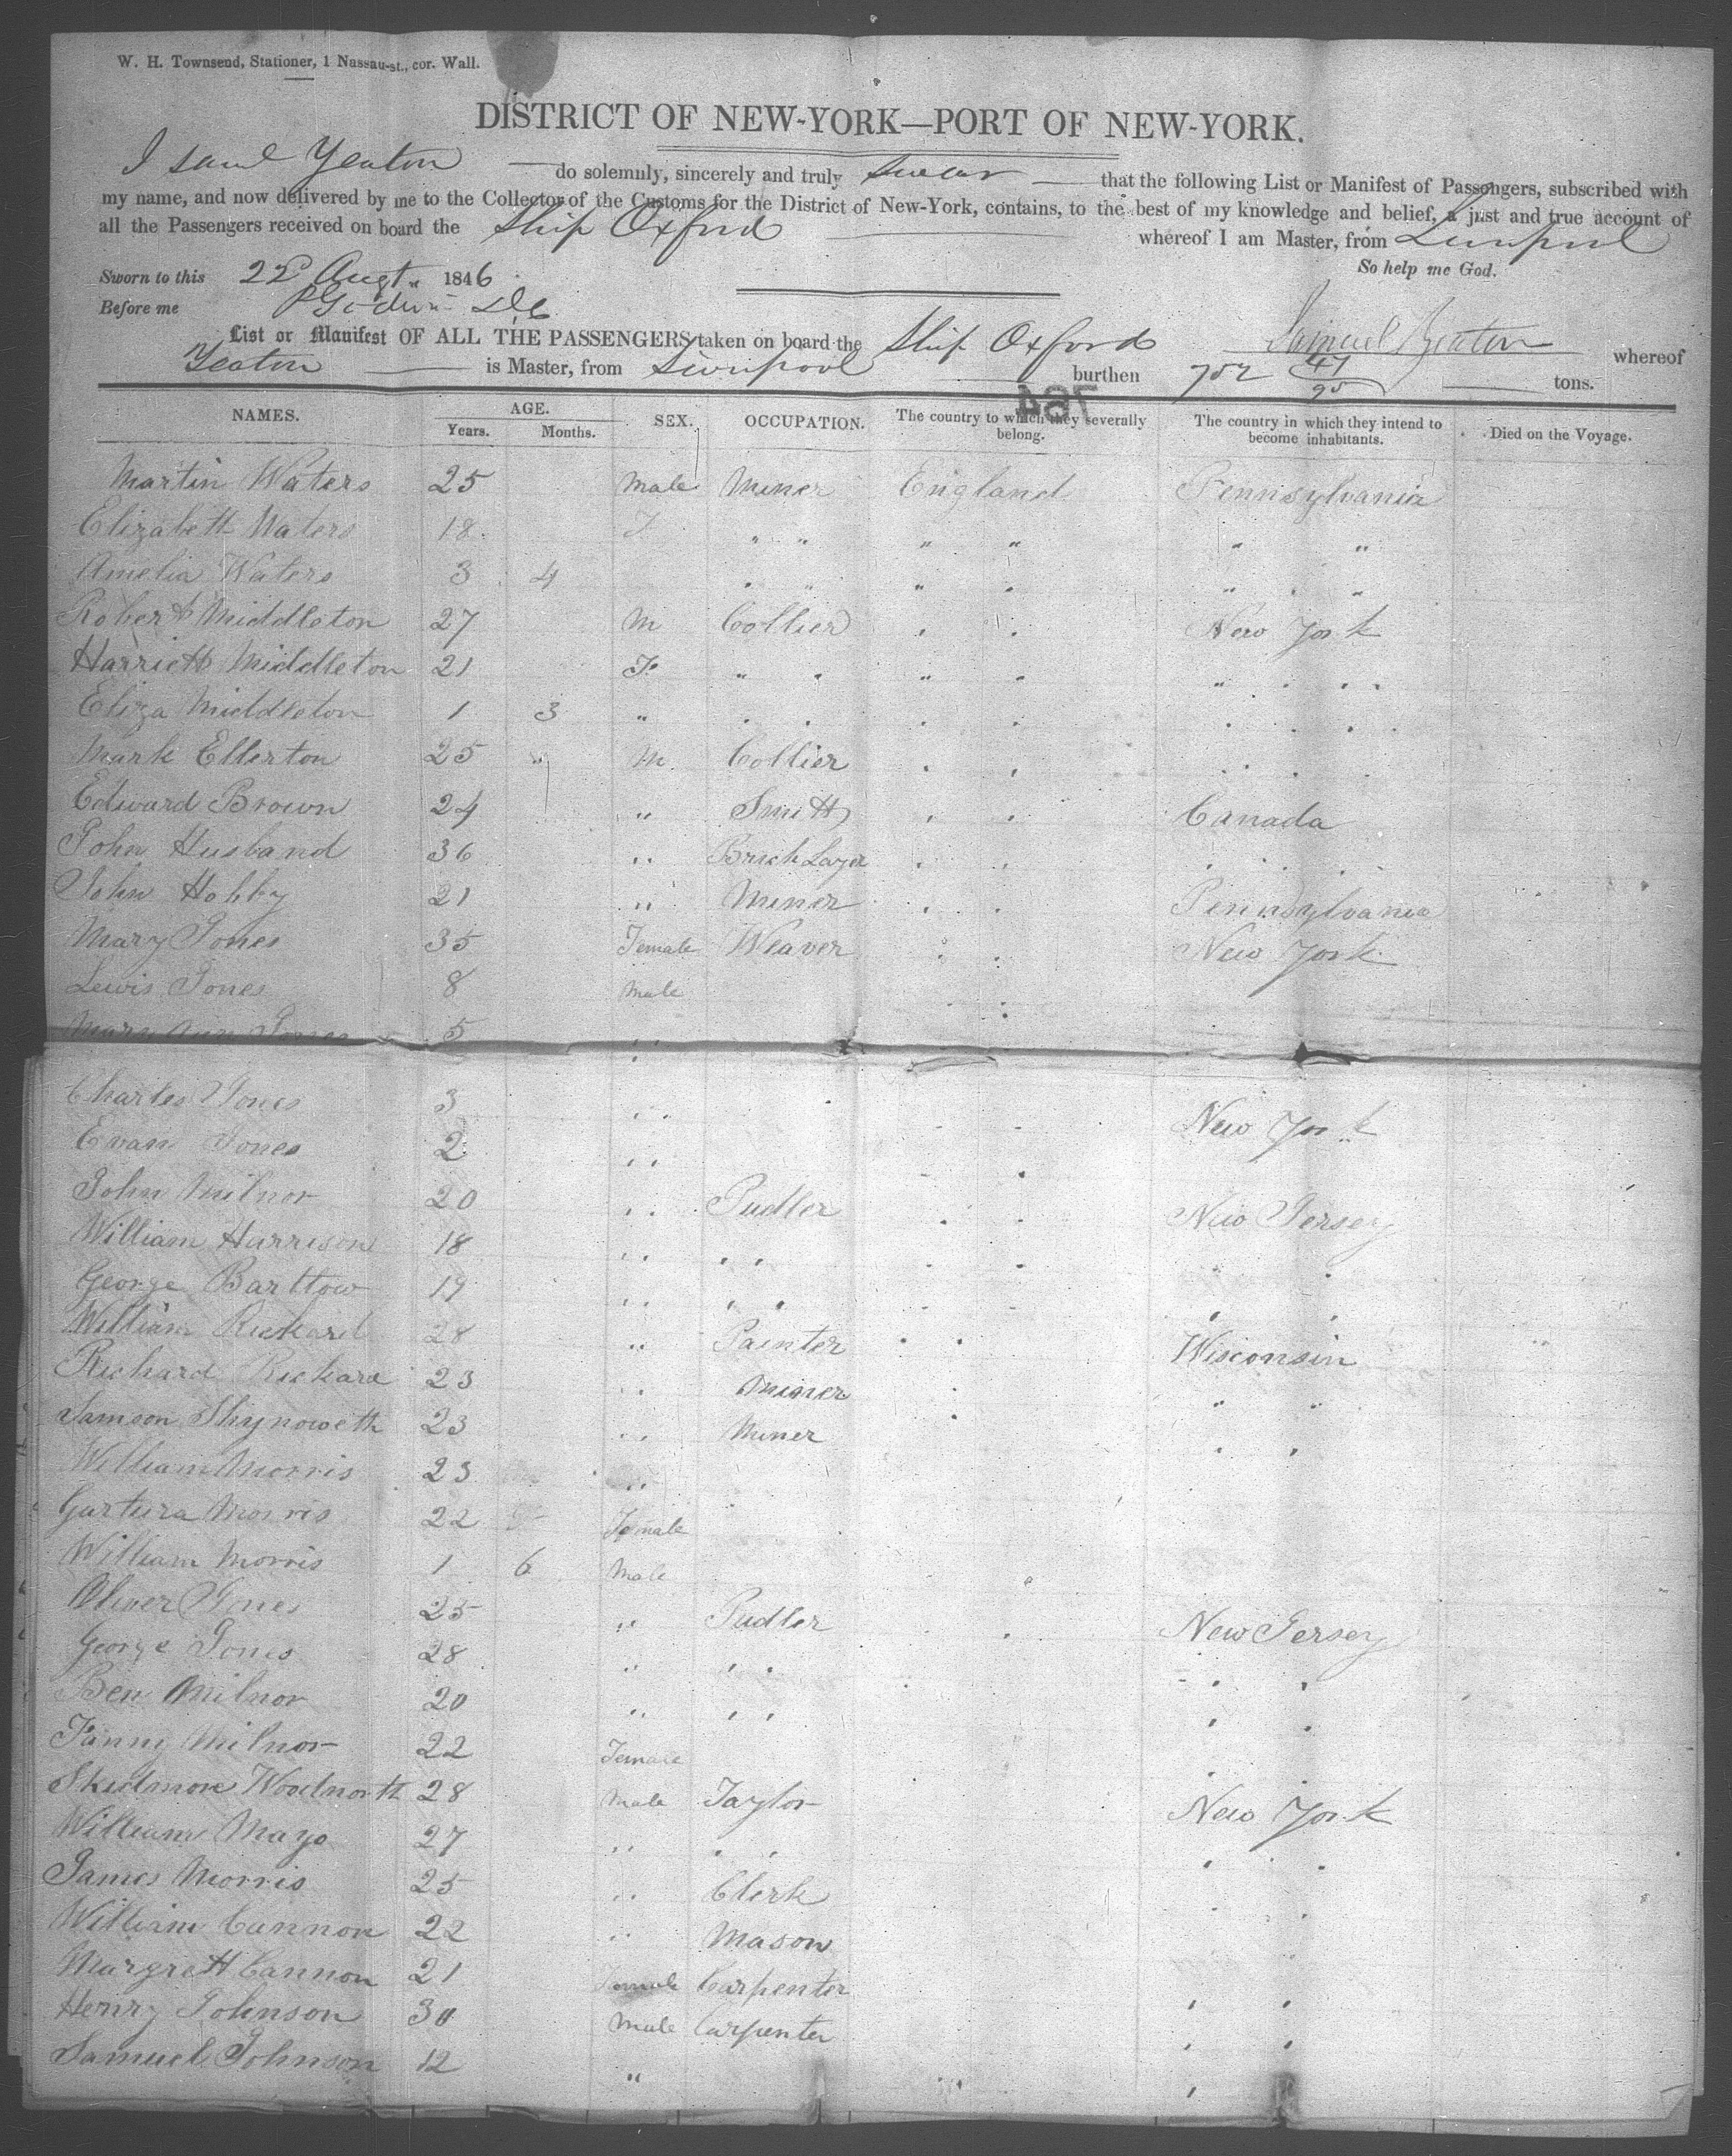 W. H. Townsend, Stationer, 1 Nassau-st., cor. Wall.
DISTRICT OF NEW-YORK—PORT OF NEW-YORK.
I Saml Yeaton do solemnly, sincerely and truly swear that the following List or Manifest of Passengers, subscribed with
my name, and now delivered by me to the Collector of the Customs for the District of New-York, contains, to the best of my knowledge and belief, a just and true account of
all the Passengers received on board the Ship Oxford whereof I am Master, from Liverpool
So help me God.
Sworn to this 22d Augt. 1846
Before me
Samuel Yeaton
List or Manifest OF ALL THE PASSENGERS taken on board the Ship Oxford whereof
Yeaton is Master, from Liverpool burthen 752 47/95 tons.
NAMES. AGE. Years. Months. SEX. OCCUPATION. The country to which they severally belong. The country in which they intend to become inhabitants. Died on the Voyage.
Martin Waters 25 Male Miner England Pennsylvania
Elizabeth Waters 18 F " " " " " "
Amelia Waters 3 4 " " " " " "
Robert Middleton 27 M Collier " " New York
Harriett Middleton 21 F " " " " " "
Eliza Middleton 1 3 " " " " " " "
Mark Ellerton 25 " M Collier " " " "
Edward Brown 24 " Smith " " Canada
John Husband 36 " Brick Layer " " " "
John Hobby 21 " Miner " " Pennsylvania
Mary Jones 35 Female Weaver " " New York
Lewis Jones 8 Male " "
Mary Ann Jones 5 "
Charles Jones 3 " " " New York
Evan Jones 2 " " "
John Milnor 20 " Pudler " " New Jersey
William Harrison 18 " " " " " " "
George Bartlow 19 " " " " " " "
William Rickard 28 " Painter " " Wisconsin
Richard Rickard 23 " Miner " " "
Samson Shynoweth 23 " Miner " " "
William Morris 23 "
Morris 22 Female
William Morris 1 6 Male
Oliver Jones 25 " Pudler " New Jersey
George Jones 28 " " " " "
Ben Milnor 20 " " " " "
Fanny Milnor 22 Female " "
Skidmore Woodnorth 28 Male Taylor New York
William Mayo 27 " " " " "
James Morris 25 " Clerk " "
William Cannon 22 " Mason
Margrett Cannon 21 Female Carpenter " "
Henry Johnson 30 Male Carpenter " "
Samuel Johnson 12 " "